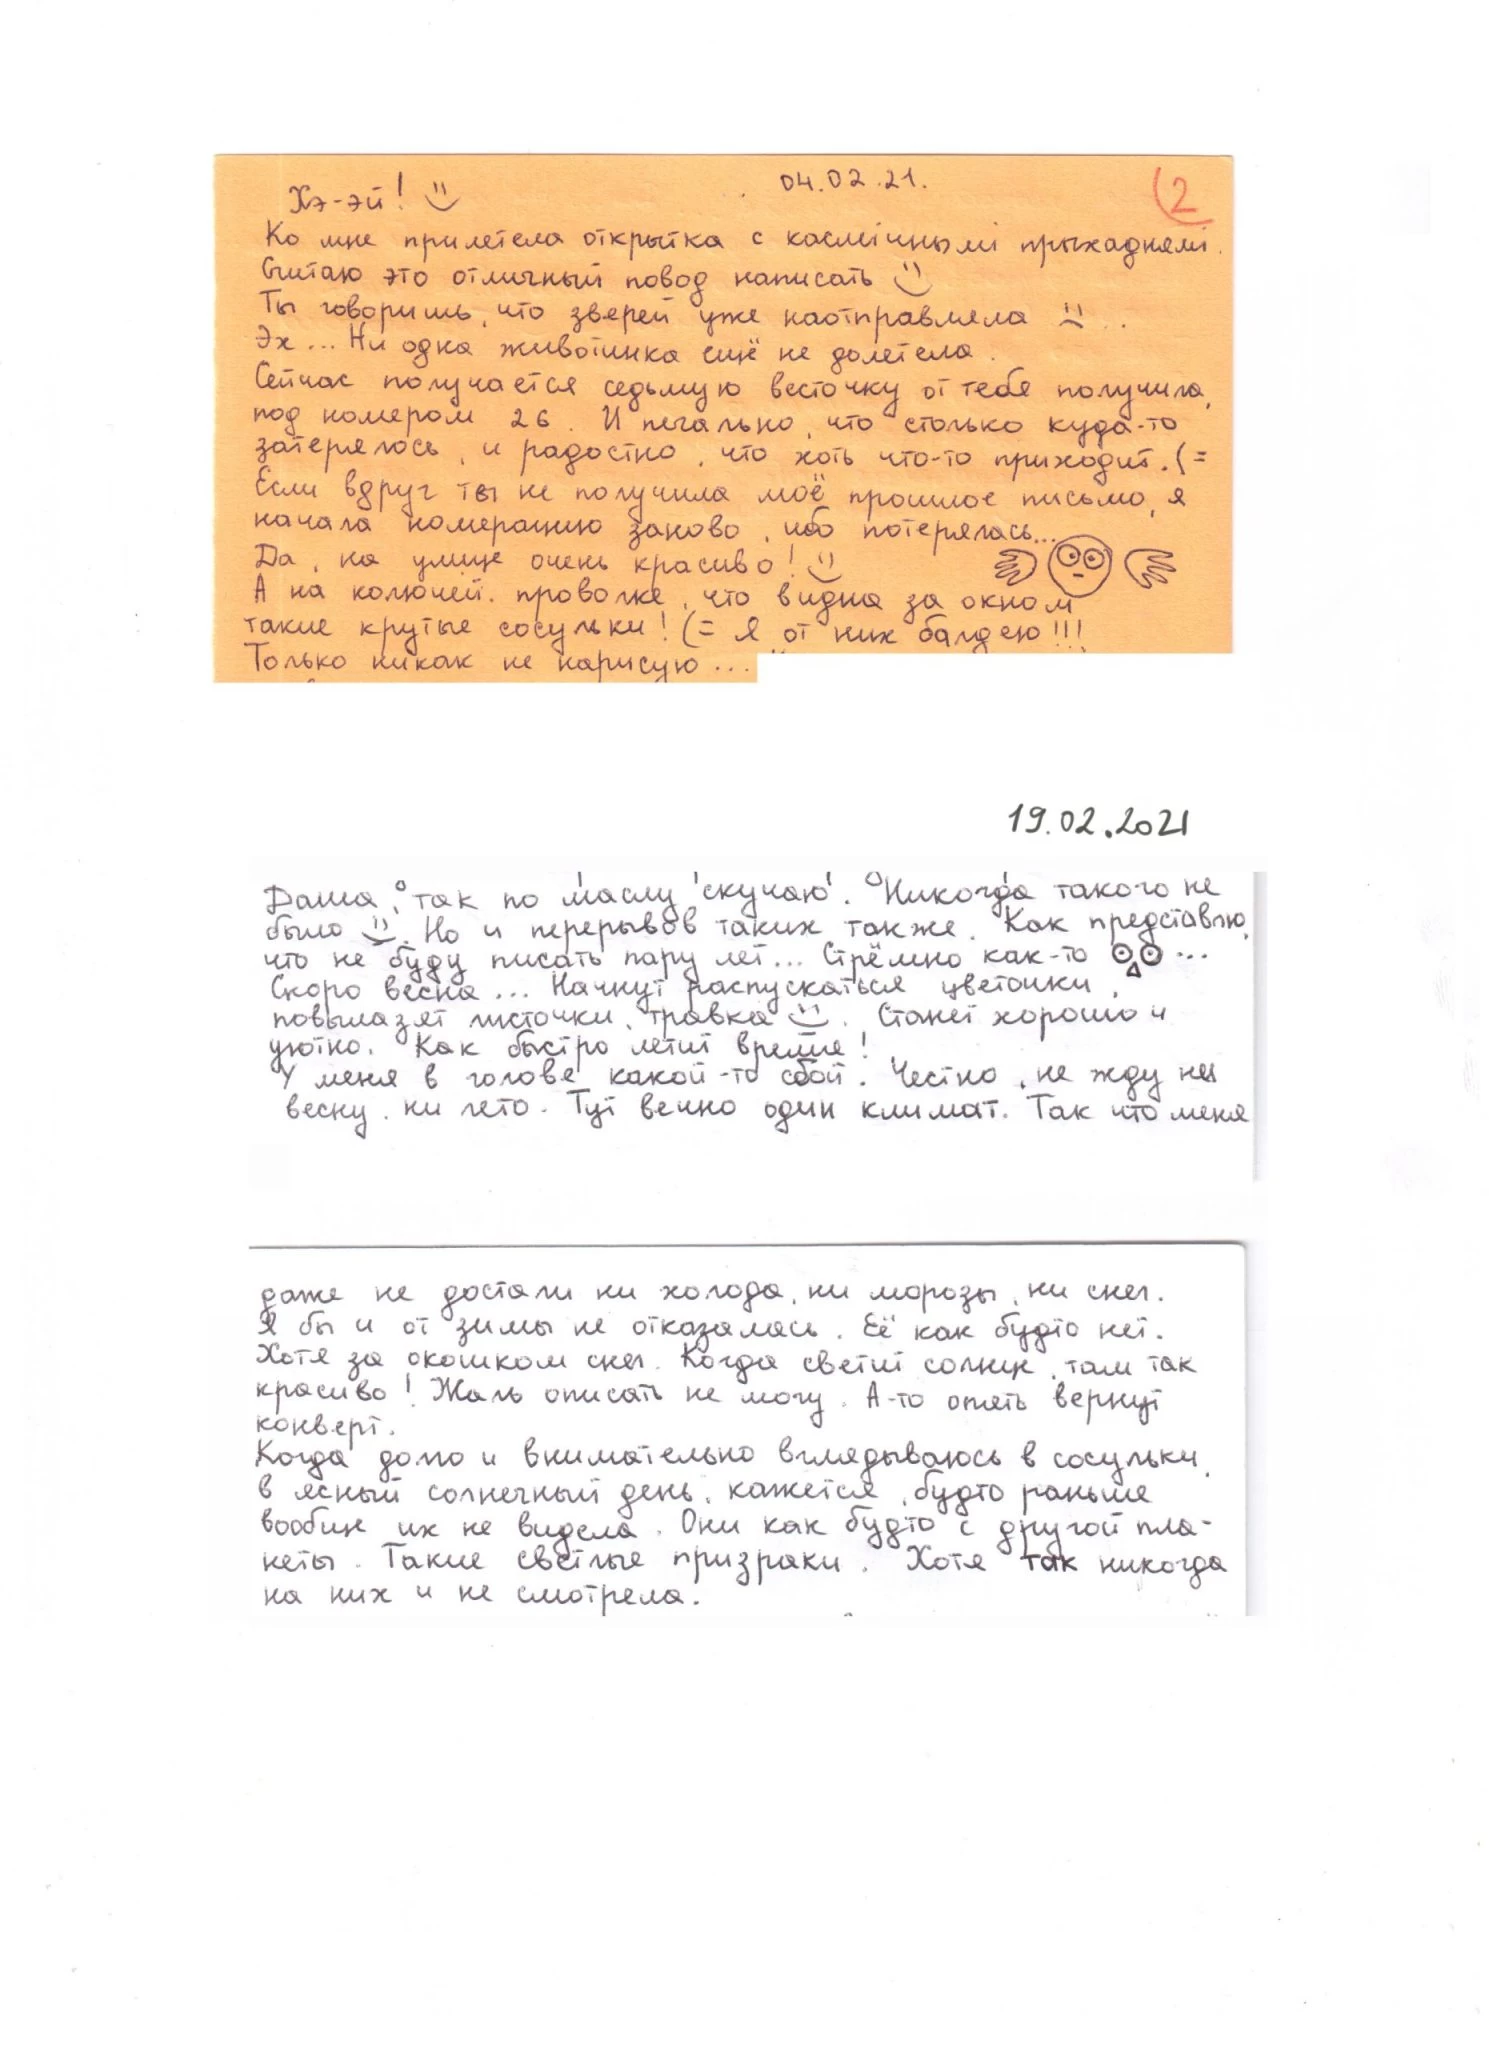 04.02.21.
2
Хэ-эй!
Ко мне прилетела открытка с касмічнымі прыхаднямі.
Считаю это отличный повод написать
Ты говоришь, что зверей уже наотправляла ...
Эх... Ни одна животинка ещё не долетела.
Сейчас получается седьмую весточку от тебя получила,
под номером 26. И печально, что столько куда-то
затерялось, и радостно, что хоть что-то приходит. (=
Если вдруг ты не получила моё прошлое письмо, я
начала номерацию заново, ибо потерялась...
Да, на улице очень красиво!
А на колючей проволке, что видна за окном
такие крутые сосульки! (= Я от них балдею!!!
Только никак не нарисую...
19.02.2021
Даша, так по маслу скучаю. Никогда такого не
было. Но и перерывов таких также. Как представлю,
что не буду писать пару лет... Стрёмно как-то ...
Скоро весна... Начнут распускаться цветочки,
повылазят листочки, травка. Станет хорошо и
уютно. Как быстро летит время!
У меня в голове какой-то сбой. Честно, не жду ни
весну, ни лето. Тут вечно один климат. Так что меня
даже не достали ни холода, ни морозы, ни снег.
Я бы и от зимы не отказалась. Её как будто нет.
Хотя за окошком снег. Когда светит солнце, там так
красиво! Жаль описать не могу. А-то опять вернут
конверт.
Когда долго и внимательно вглядываюсь в сосульки,
в ясный солнечный день, кажется, будто раньше
вообще их не видела. Они как будто с другой пла-
неты. Такие светлые призраки. Хотя так никогда
на них и не смотрела.